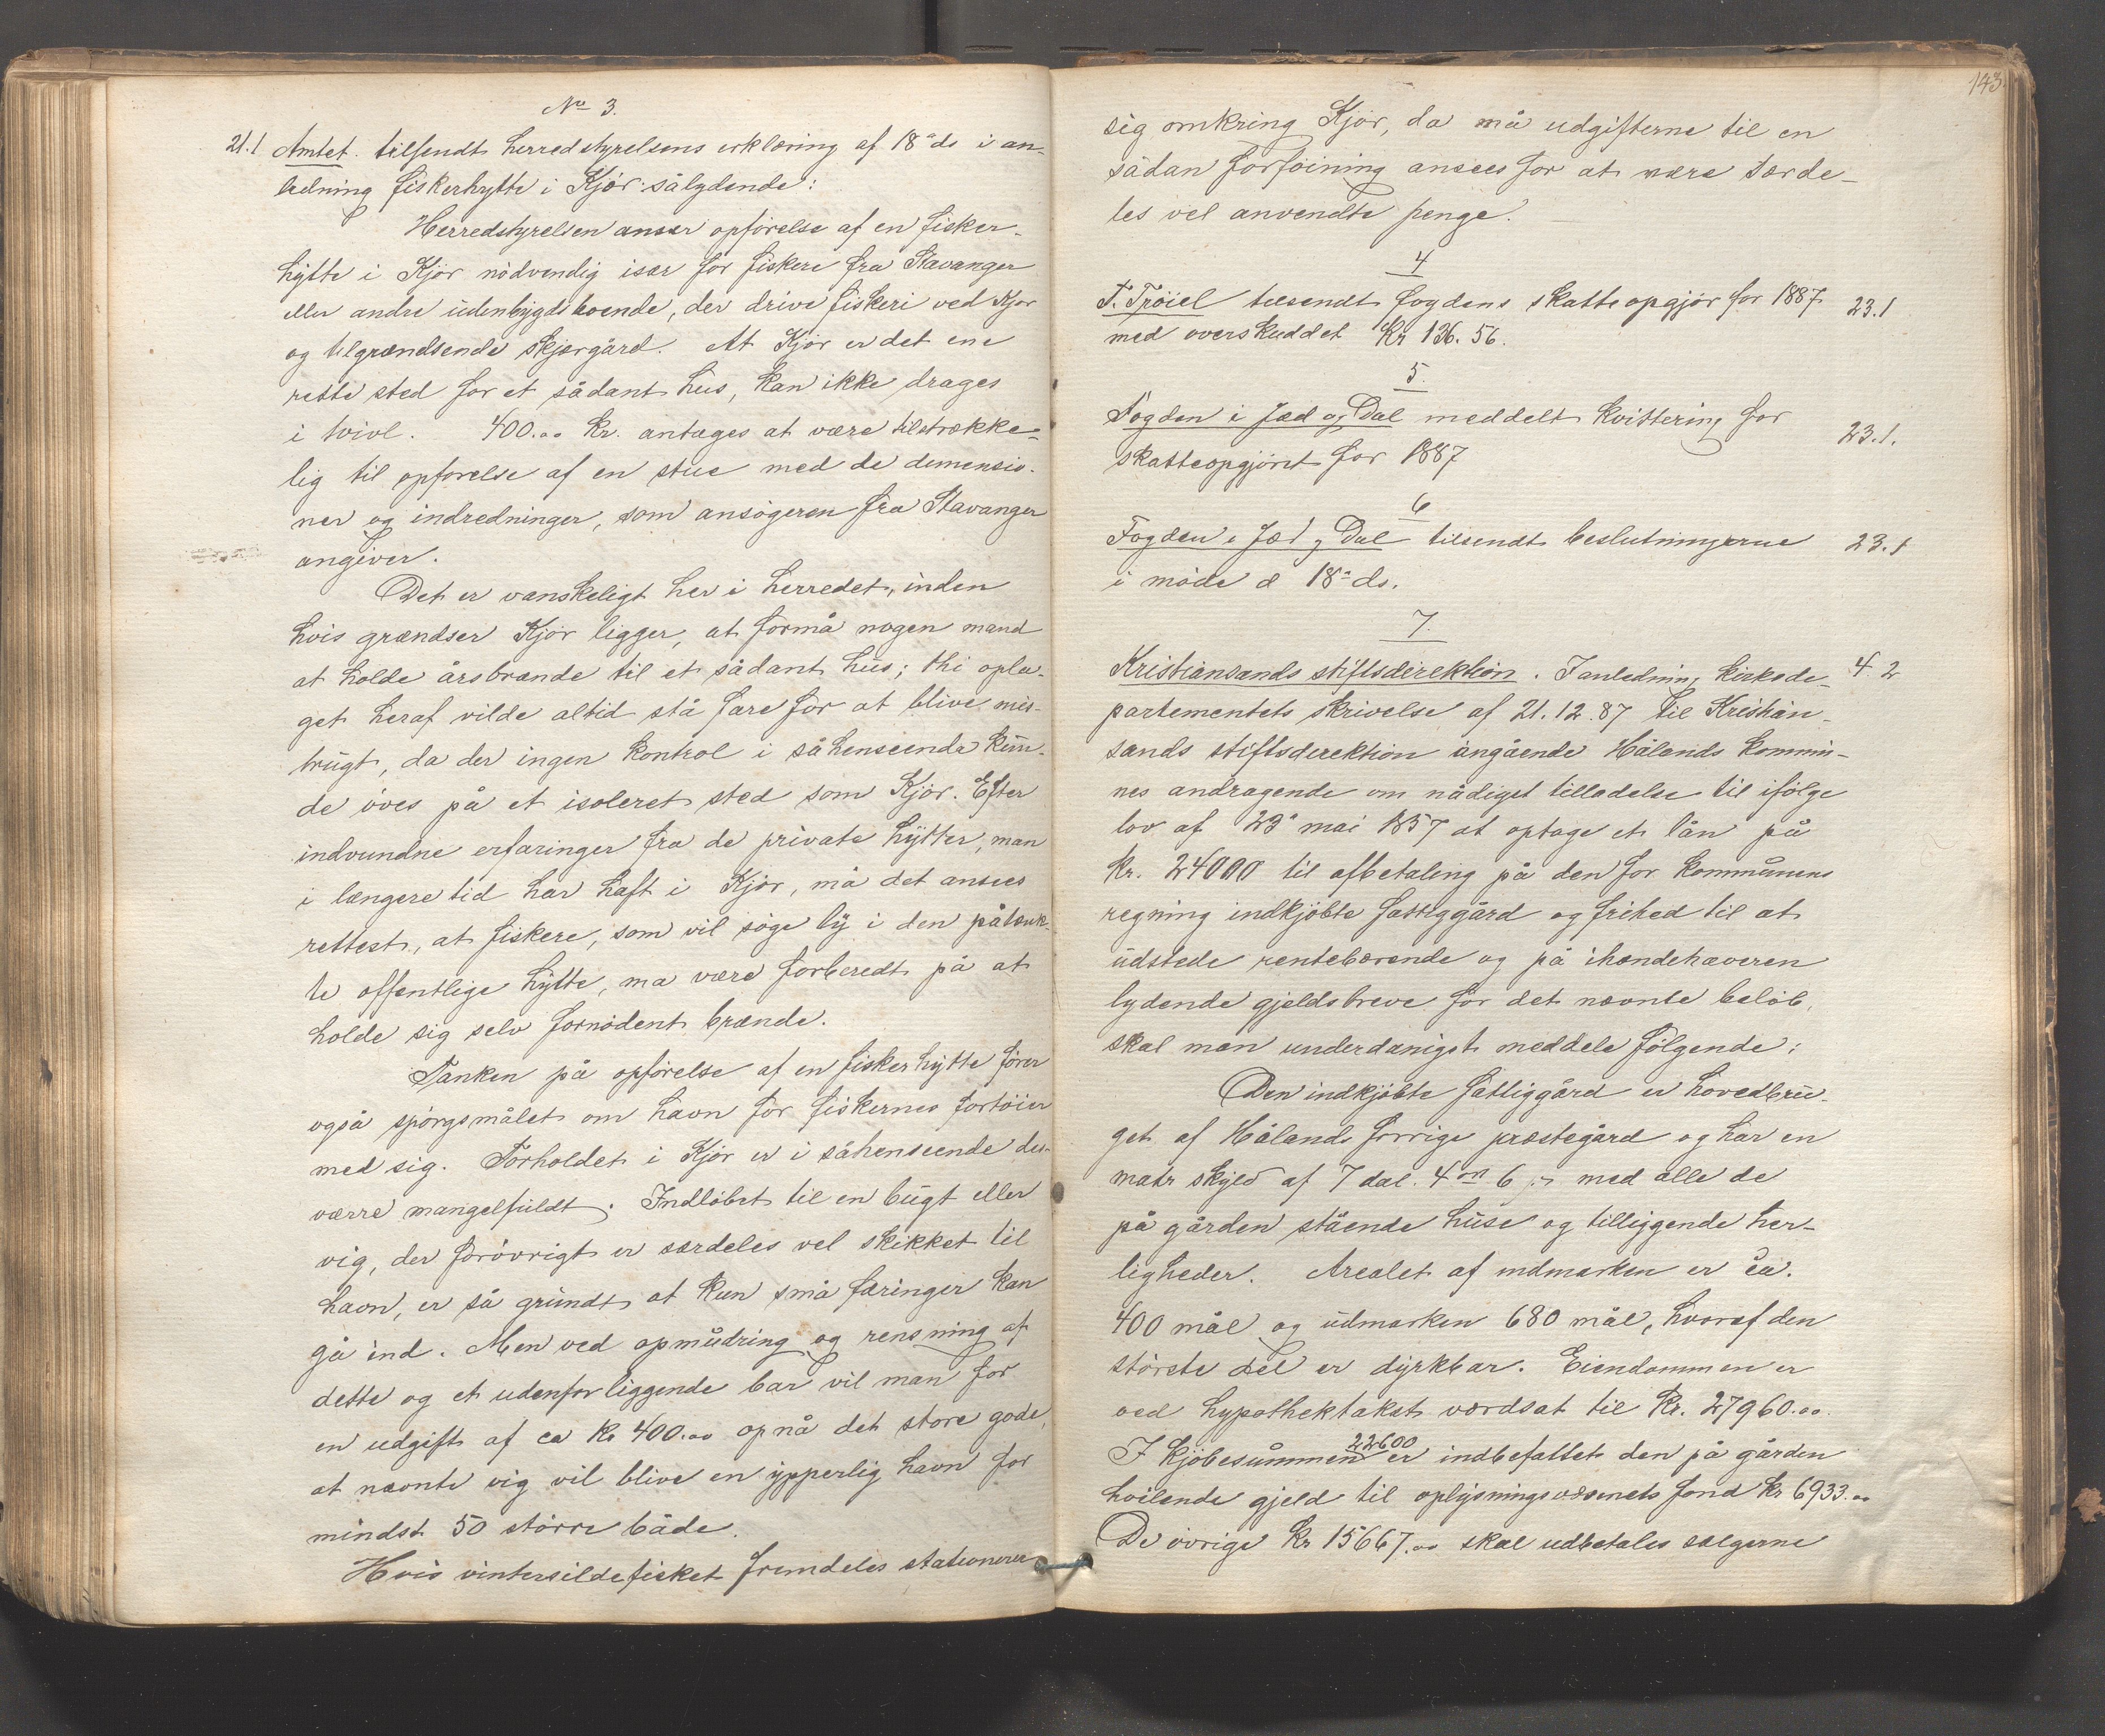 No 3.
21.1 Amtet. tilsendt herredstyrelsens erklæring af 18de ds i an-
ledning fiskerhytte i Kjør sålydende:
Herredstyrelsen anser opførelse af en fisker-
hytte i Kjør nödvendig især for fiskere fra Stavanger
eller andre udenbygds boende, der drive fiskeri ved Kjør
og tilgrændsende skjærgård. At Kjør er det ene
rette sted for et sådant hus, kan ikke drages
i tvivl. 400.00 kr. antages at være tilstrække-
lig til opførelse af en stue med de dimensio-
ner og indredninger, som ansøgeren fra Stavanger
angiver.
Det er vanskeligt her i herredet, inden
hvis grændser Kjør ligger, at formå nogen mand
at holde årsbrænde til et sådant hus; thi opla-
get heraf vilde altid stå fare for at blive mis-
brugt, da der ingen kontrol i såhenseende kun-
de öves på et isoleret sted som Kjør. Efter
indvundne erfaringer fra de private hytter, man
i længere tid har haft i Kjør, må det ansees
rettest, at fiskere, som vil söge ly i den påtænk-
te offentlige hytte, ma være forberedt på at
holde sig selv fornödent brænde.
Tanken på opførelse af en fiskerhytte fører
også spörgsmålet om havn for fiskernes fortöier
med sig. Forholdet i Kjør er i såhenseende des-
værre mangelfuldt. Indlöbet til en bugt eller
vig, der forövrigt er særdeles vel skikket til
havn, er så grundt at kun små færinger kan
gå ind. Men ved opmudring og rensning af
dette og et udenforliggende bar vil man for
en udgift af ca kr 400.00 opnå det store gode,
at nævnte vig vil blive en ypperlig havn for
mindst 50 större både.
Hvis vintersildefisket fremdeles stationerer
143.
sig omkring Kjør, da må udgifterne til en
sådan forföining ansees for at være særde-
les vel anvendte penge.
4
T. Tröiel tilsendt fogdens skatteopgjör for 1887 23.1
med overskuddet Kr 136.56.
5.
Fogden i Jæd og Dal meddelt kvittering for
skatteopgjöret for 1887 23.1.
6
Fogden i Jæd og Dal tilsendt beslutningerne 23.1
i möde d 18de ds.
7.
Kristiansands stiftsdirektion. I anledning kirkede- 4.2
partementets skrivelse af 21.12.87 til Kristian-
sands stiftsdirektion angående Hålands kommu-
nes andragende om nådigst tilladelse til ifölge
lov af 23de mai 1857 at optage et lån på
kr. 24000 til afbetaling på den for kommunens
regning indkjöbte fattiggård og frihed til at
udstede rentebærende og på ihændehaveren
lydende gjeldsbreve for det nævnte belöb,
skal man underdanigst meddele fölgende:
Den indkjöbte fattiggård er hovedbru-
get af Hålands forrige præstegård og har en
matr skyld af 7 dal. 4 ort 6 med alle de
på gården stående huse og tilliggende her-
ligheder. Arealet af indmarken er ca.
400 mål og udmarken 680 mål, hvoraf den
störste del er dyrkbar. Eiendommen er
ved hypothektakst værdsat til Kr. 27960.00.
I kjöbesummen 22600 er indbefattet den på gården
hvilende gjeld til oplysningsvæsenets fond kr 6933.00
De övrige kr 15667.00 skal udbetales sælgerne